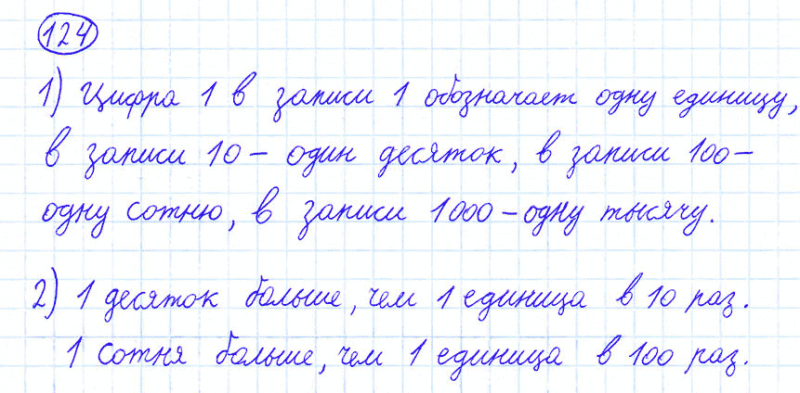 124
1) Цифра 1 в записи 1 обозначает одну единицу,
в записи 10 – один десяток, в записи 100 –
одну сотню, в записи 1000 – одну тысячу.
2) 1 десяток больше, чем 1 единица в 10 раз.
1 сотня больше, чем 1 единица в 100 раз.